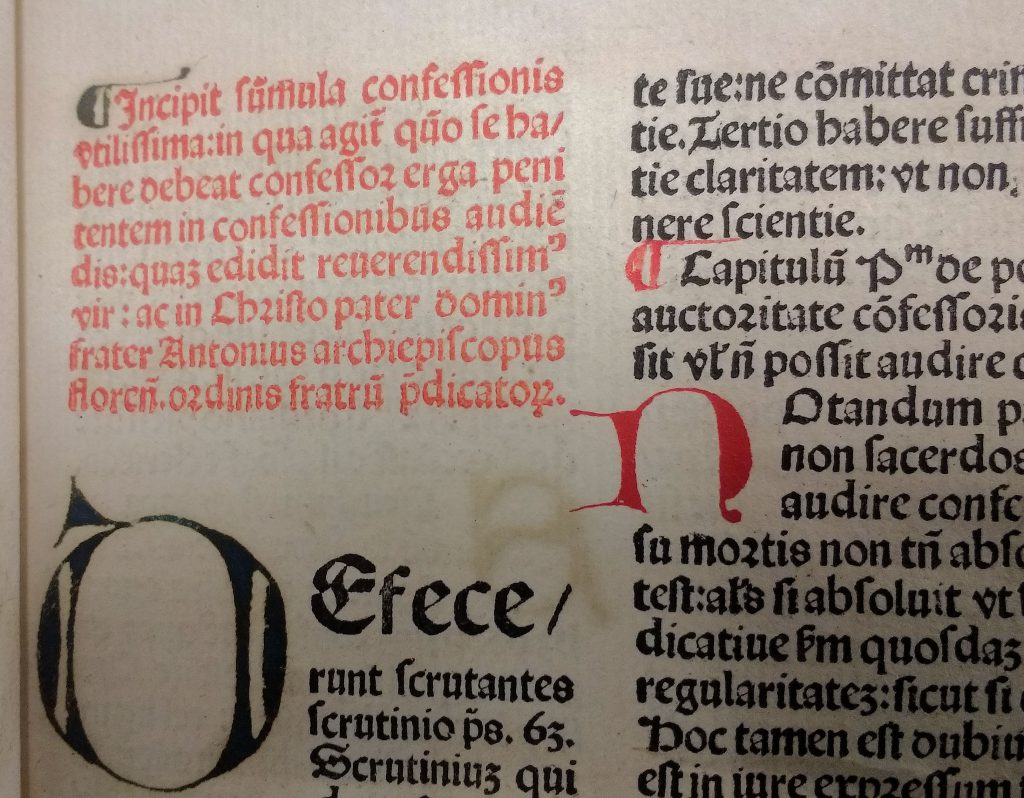 ¶Incipit sūmula confessionis
vtilissima:in qua agit̄ quō se ha/
bere debeat confessoꝛ erga peni
tentem in confessionibus audiē
dis:quaꝫ edidit reuerendissimꝰ
vir : ac in Chꝛisto pater dominꝰ
frater Antonius archiepiscopus
florcn̄. oꝛdinis fratrū p̄dicatoꝝ.
D
Efece/
runt scrutantes
scrutinio p̄s. 63.
Scrutiniuꝫ qui
te sue:ne cōmittat crim
tie. Tertio habere suffi
tie claritatem: vt non
nere scientie.
¶ Capitulū Pᵐ de po
auctoꝛitate cōfessoꝛis
sit vl̄ n̄ possit audire c
N Otandum p
non sacerdos
audire confe
su moꝛtis non tn̄ abso
test:al̄s si absoluit vt
dicatiue fm quosdaꝫ
regularitateꝫ:sicut si
Hoc tamen est dubiu
est in iure expꝛessum